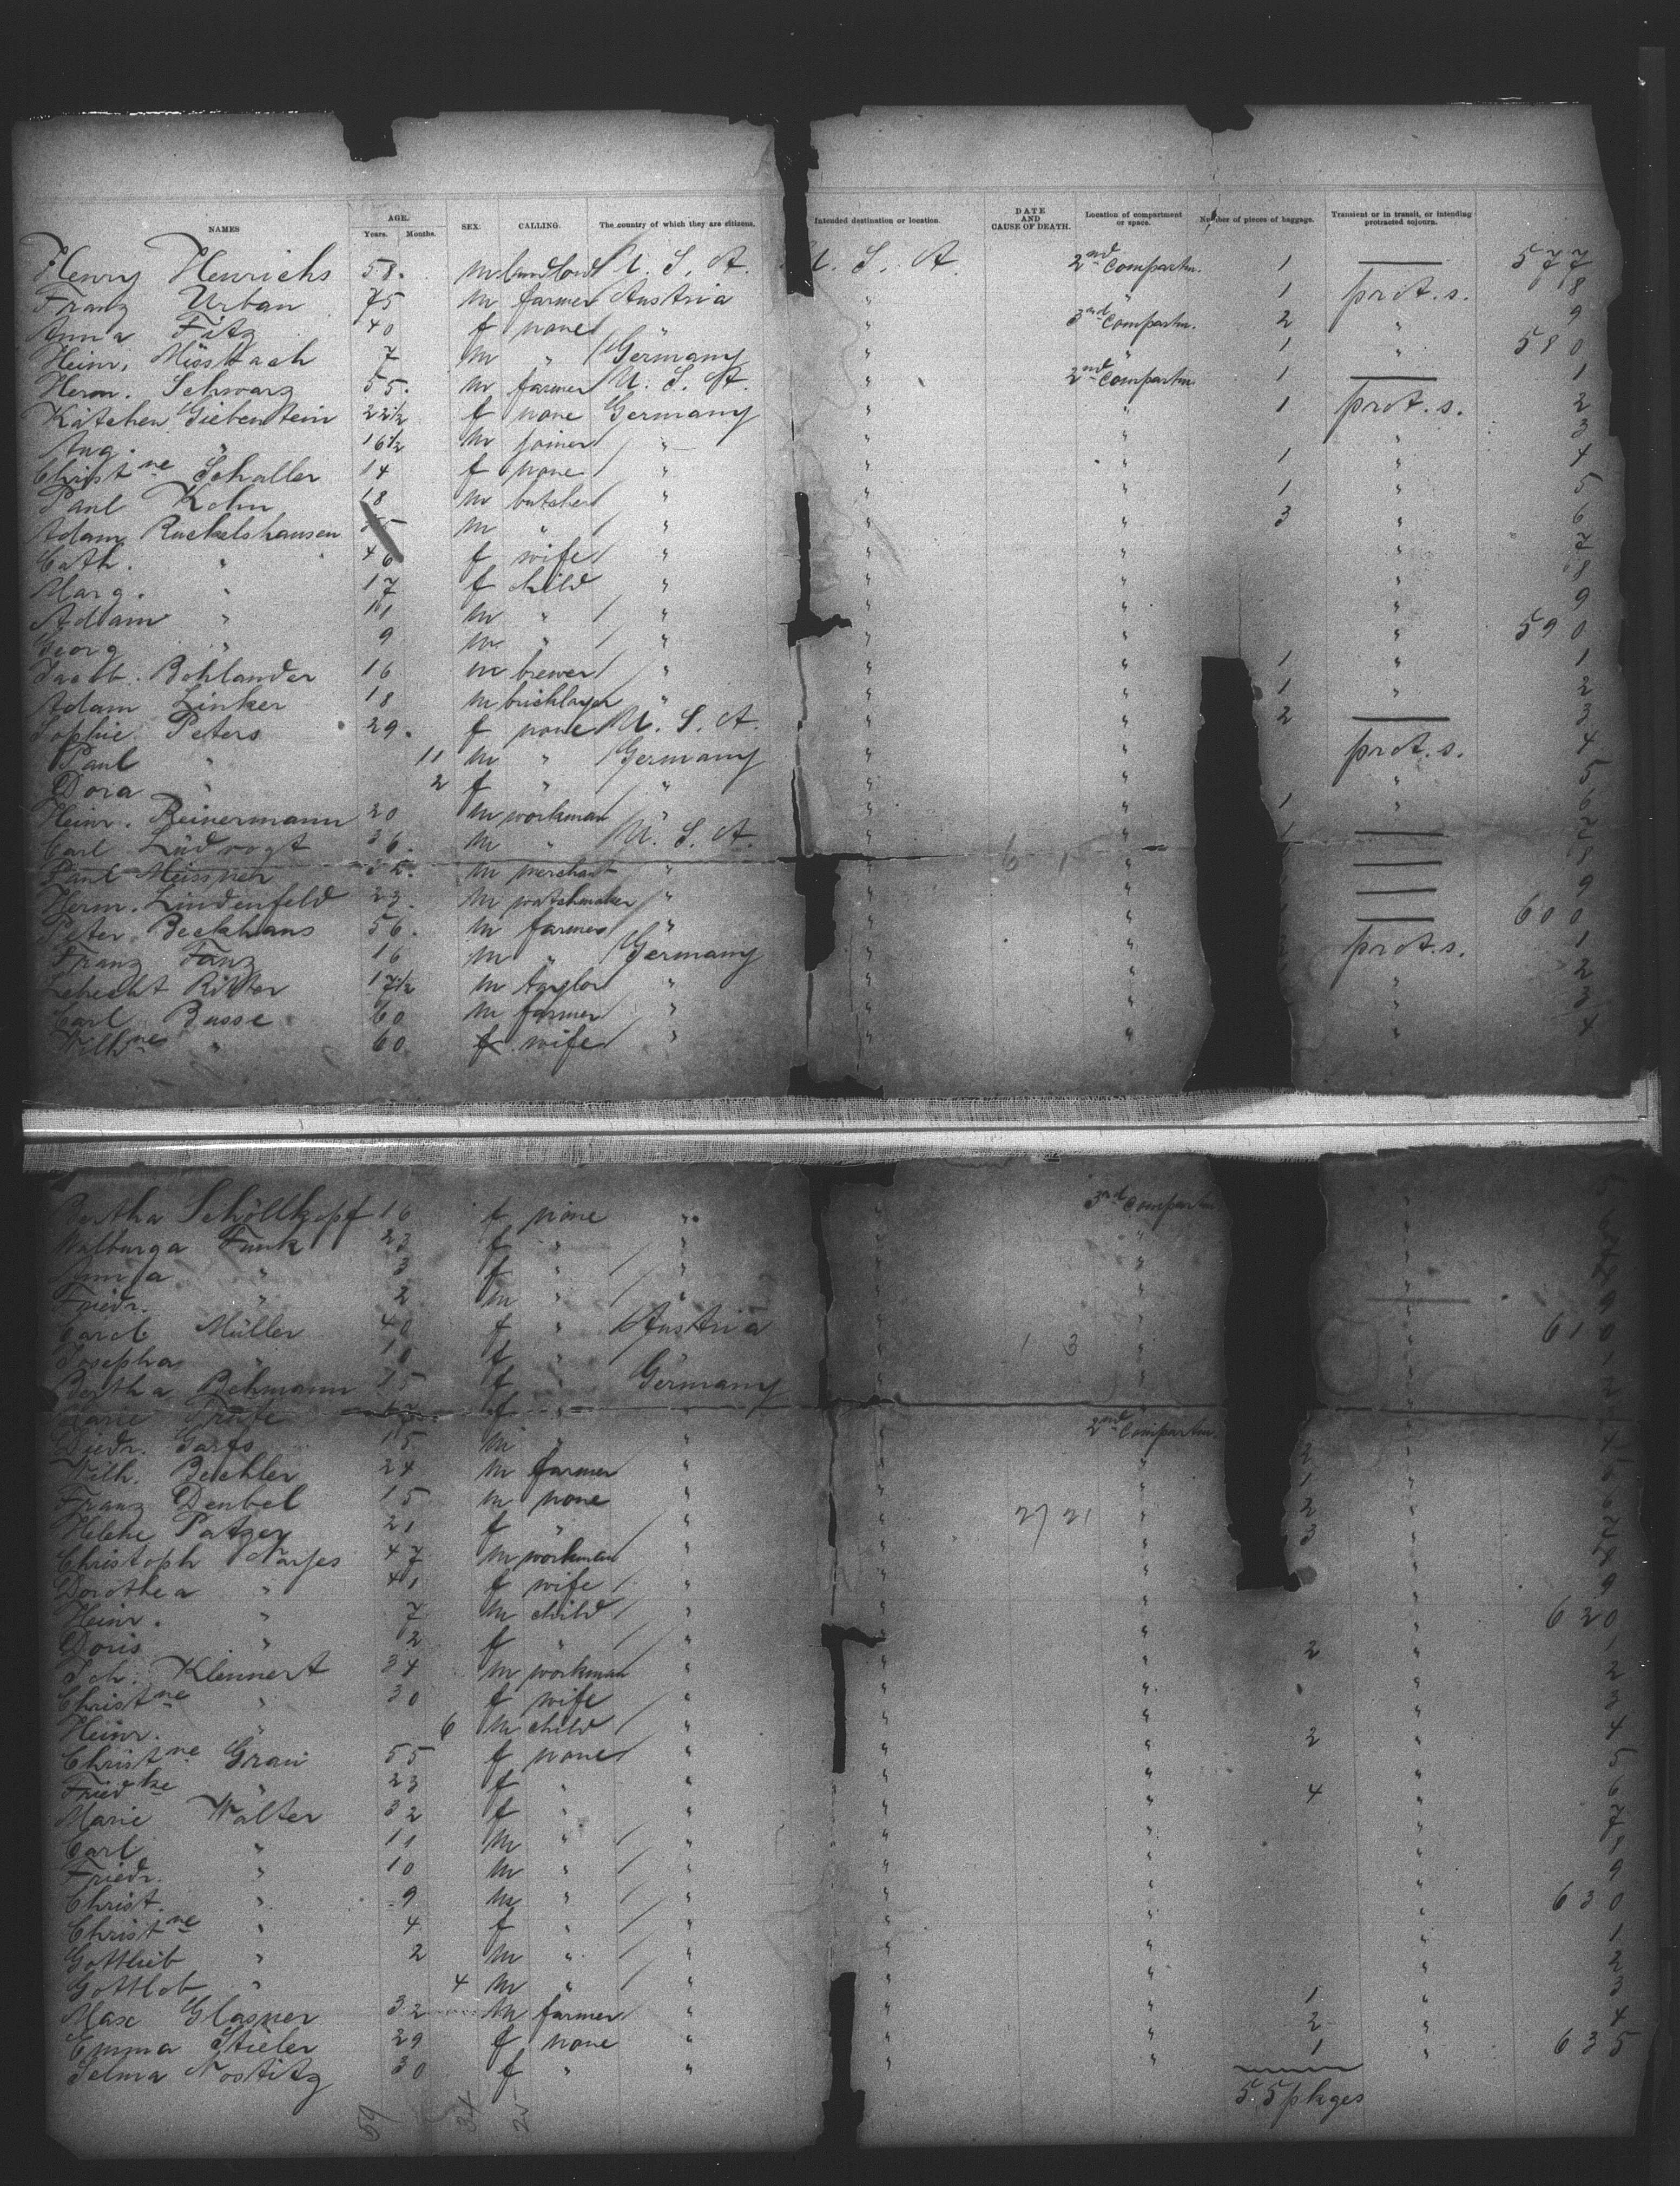 NAMES AGE. Years. Months. SEX. CALLING. The country of which they are citizens. Intended destination or location. DATE AND CAUSE OF DEATH. Location of compartment or space. Number of pieces of baggage. Transient or in transit, or intending protracted sojourn.
Henry Henrichs 58. m landlord U. S. A. U. S. A. 2nd Compartm. 1 — 577
Franz Urban 75 m farmer Austria " " 1 prot. s. 8
Anna Fitz 40 f none " " 3rd Compartm. 2 " 9
Heinr. Misstach 7 m " Germany " " 1 " 580
Herm. Schwarz 55. m farmer U. S. A. " 2nd Compartm. 1 — 1
Kätchen Giebenstein 22½ f none Germany " " 1 prot. s. 2
Aug. " 16½ m joiner " " " " 3
Christne Schaller 14 f none " " " 1 " 4
Paul Kohn 18 m butcher " " " 1 " 5
Adam Ruckelshausen m " " " " 3 " 6
Cath. " 46 f wife " " " " 7
Marg. " 17 f child " " " " 8
Adam " 11 m " " " " " 9
Georg " 9 m " " " " " 590
Jacob. Bohlander 16 m brewer " " " 1 " 1
Adam Linker 18 m bricklayer " " " 1 " 2
Sophie Peters 29. f none U. S. A. " " 2 — 3
Paul " 11 m " Germany " " prot. s. 4
Dora " 2 f " " " " " 5
Heinr. Reinermann 20 m workman " " " 1 " 6
Carl Lüdvogt 36. m " U. S. A. " " 1 — 7
Paul Meissner m merchant " " " — 8
Herm. Lindenfeld 23. m watchmaker " " " — 9
Peter Beckhaus 56. m farmer " " " — 600
Franz Fanz 16 m " Germany " " prot. s. 1
Lebrecht Ritter 17½ m taylor " " " " 2
Carl Busse 60 m farmer " " " " 3
Wilhne " 60 f wife " " " " 4
Bertha Schöllkopf 16 f none " " 3rd Compartm. "
Walburga Funk 23 f " " " " "
Anna " 3 f " " " " "
Friedr. " 2 m " " " " "
Carol. Müller 40 f " Austria " " "
Josepha " 10 f " " " " " 610
Bertha Behmann 15 f " Germany " " " 1
Marie f " " " "
Diedr. Garfs 15 m " " " 2nd Compartm. 2 "
Wilh. Bechler 24 m farmer " " " 1 "
Franz Denbel 15 m none " " " 2 "
Helene Patzer 21 f " " " " 3 "
Christoph Narjes 47 m workman " " " "
Dorothea " 41 f wife " " " " 9
Heinr. " 7 m child " " " " 620
Doris " 2 f " " " " " 1
Joh. Klennert 34 m workman " " " 2 " 2
Christne " 30 f wife " " " " 3
Heinr. " 6 m child " " " " 4
Christne Grau 55 f none " " " 2 " 5
Friedke " 23 f " " " " " 6
Marie Walter 32 f " " " " 4 " 7
Carl " 11 m " " " " " 8
Friedr. " 10 m " " " " " 9
Christ. " 9 m " " " " " 630
Christne " 4 f " " " " " 1
Gottlieb " 2 m " " " " " 2
Gottlob " 4 m " " " " " 3
Max Glasner 32 m farmer " " " 1 " 4
Emma Stieler 29 f none " " " 2 " 635
Selma Nostitz 30 f " " " " 1 "
55 pkges
59 34 25